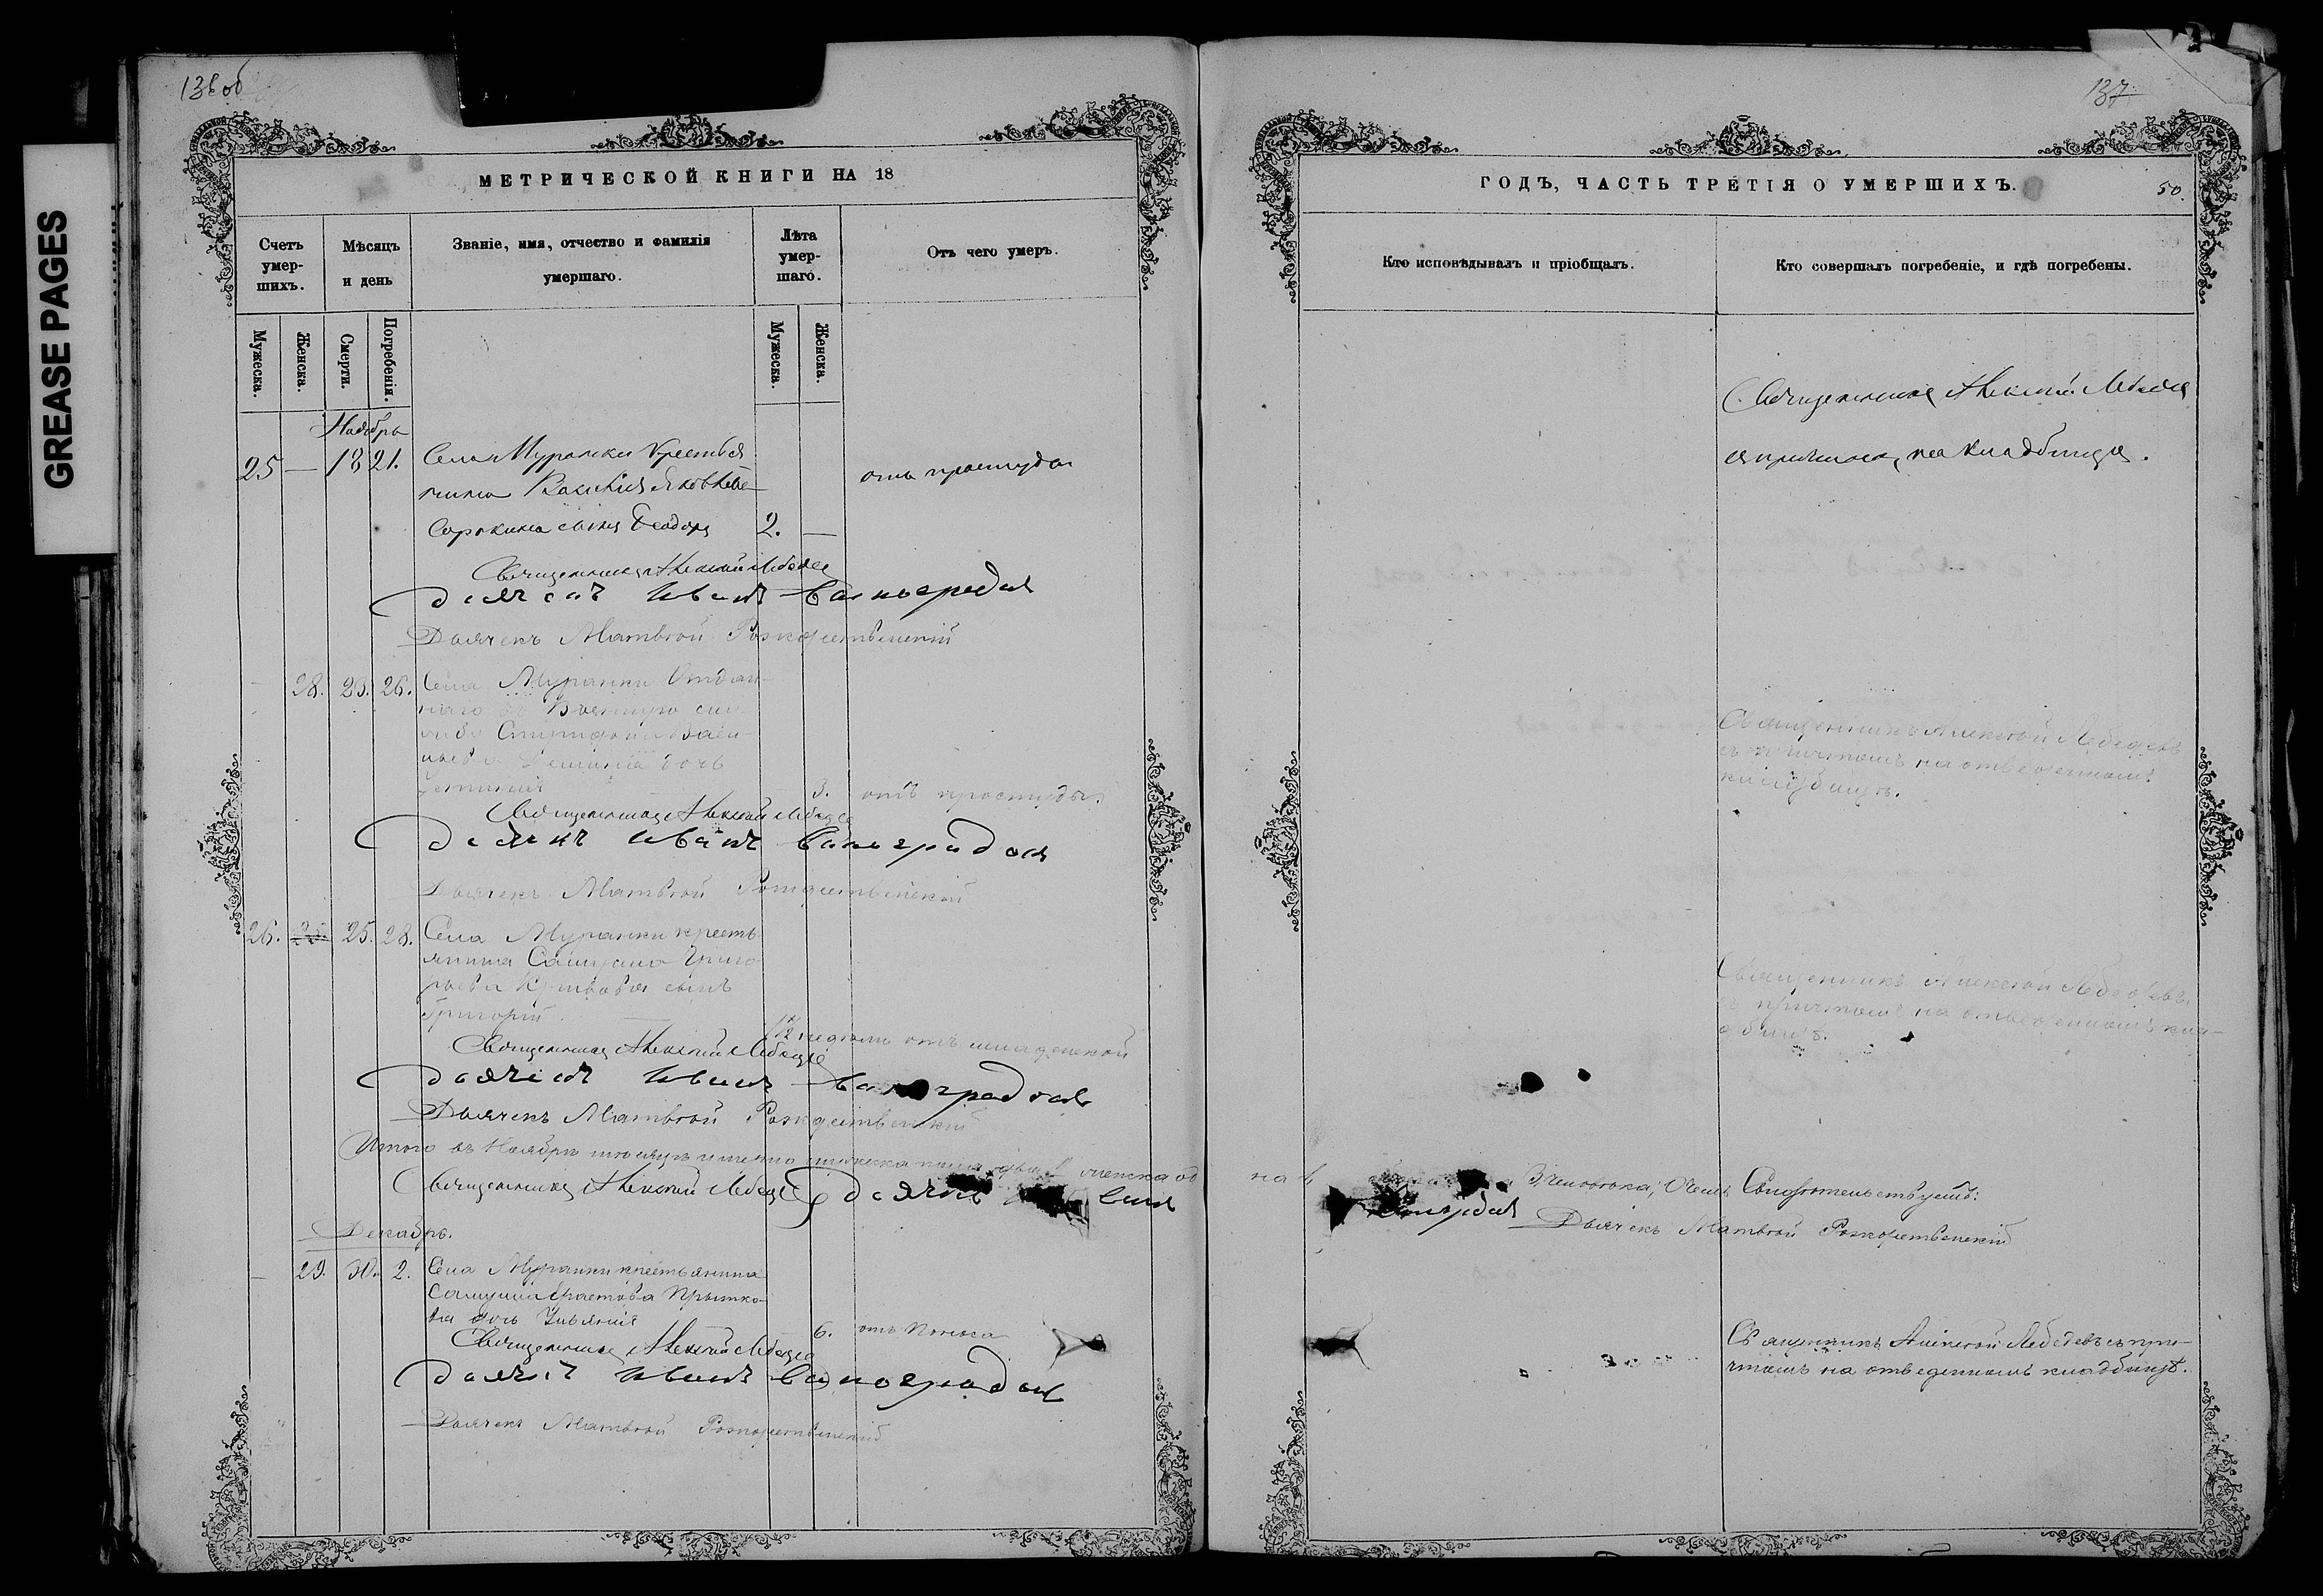 136 об
GREASE PAGES
МЕТРИЧЕСКОЙ КНИГИ НА 18
Счетъ умер-шихъ.
Мѣсяцъ и день
Званіе, имя, отчество и фамилія умершаго.
Лѣта умер-шаго.
Отъ чего умеръ.
Мужеска.
Женска.
Смерти.
Погребенія.
Мужеска.
Женска.
Ноябрь
25 — 18 21. Села Муранки крестья
нина Василия Яковлева
Сорокина сынъ Ѳеодоръ 2. —
отъ простуды
Священникъ Алексий Лебедев
дьячекъ Иванъ Виноградов
Дьячекъ Матвѣй Рождественскій
28. 23. 26. Села Муранки Отдан-
наго въ Военную слу-
жбу Спиридона
дочь
3. отъ простуды.
Священникъ Алексий Лебедев
дьячекъ Иванъ Виноградов
Дьячекъ Матвѣй Рождественскій
26. 25. 28. Села Муранки кресть
янина Григо
рьева сынъ
Григорій.
недѣли отъ младенской
Священникъ Алексий Лебедев
дьячекъ Иванъ Виноградов
Дьячекъ Матвѣй Рождественскій
Итого въ Ноябрѣ мѣсяцѣ умерло мужеска пола два женска од
Священникъ Алексий Лебедев дьячекъ
Декабрь.
— 29. 30. 2. Села Муранки крестьянина
Прытко-
ва дочь Ульянія
6. отъ поноса
Священникъ Алексий Лебедев
дьячекъ Иванъ Виноградов
Дьячекъ Матвѣй Рождественскій
137
ГОДЪ, ЧАСТЬ ТРЕТІЯ О УМЕРШИХЪ.
50.
Кто исповѣдывалъ и пріобщалъ.
Кто совершалъ погребеніе, и гдѣ погребены.
Священникъ Алексий Лебедев
съ причтомъ, на кладбище.
Священникъ Алексѣй Лебедевъ
съ причтомъ на отведенномъ
кладбищѣ.
Священникъ Алексѣй Лебедевъ
съ причтомъ на отведенномъ кла-
дбищѣ.
на 3 человѣка, О чемъ Свидѣтельствуемъ:
Дьячекъ Матвѣй Рождественскій
Священникъ Алексѣй Лебедевъ съ при-
чтомъ на отведенномъ кладбищѣ.